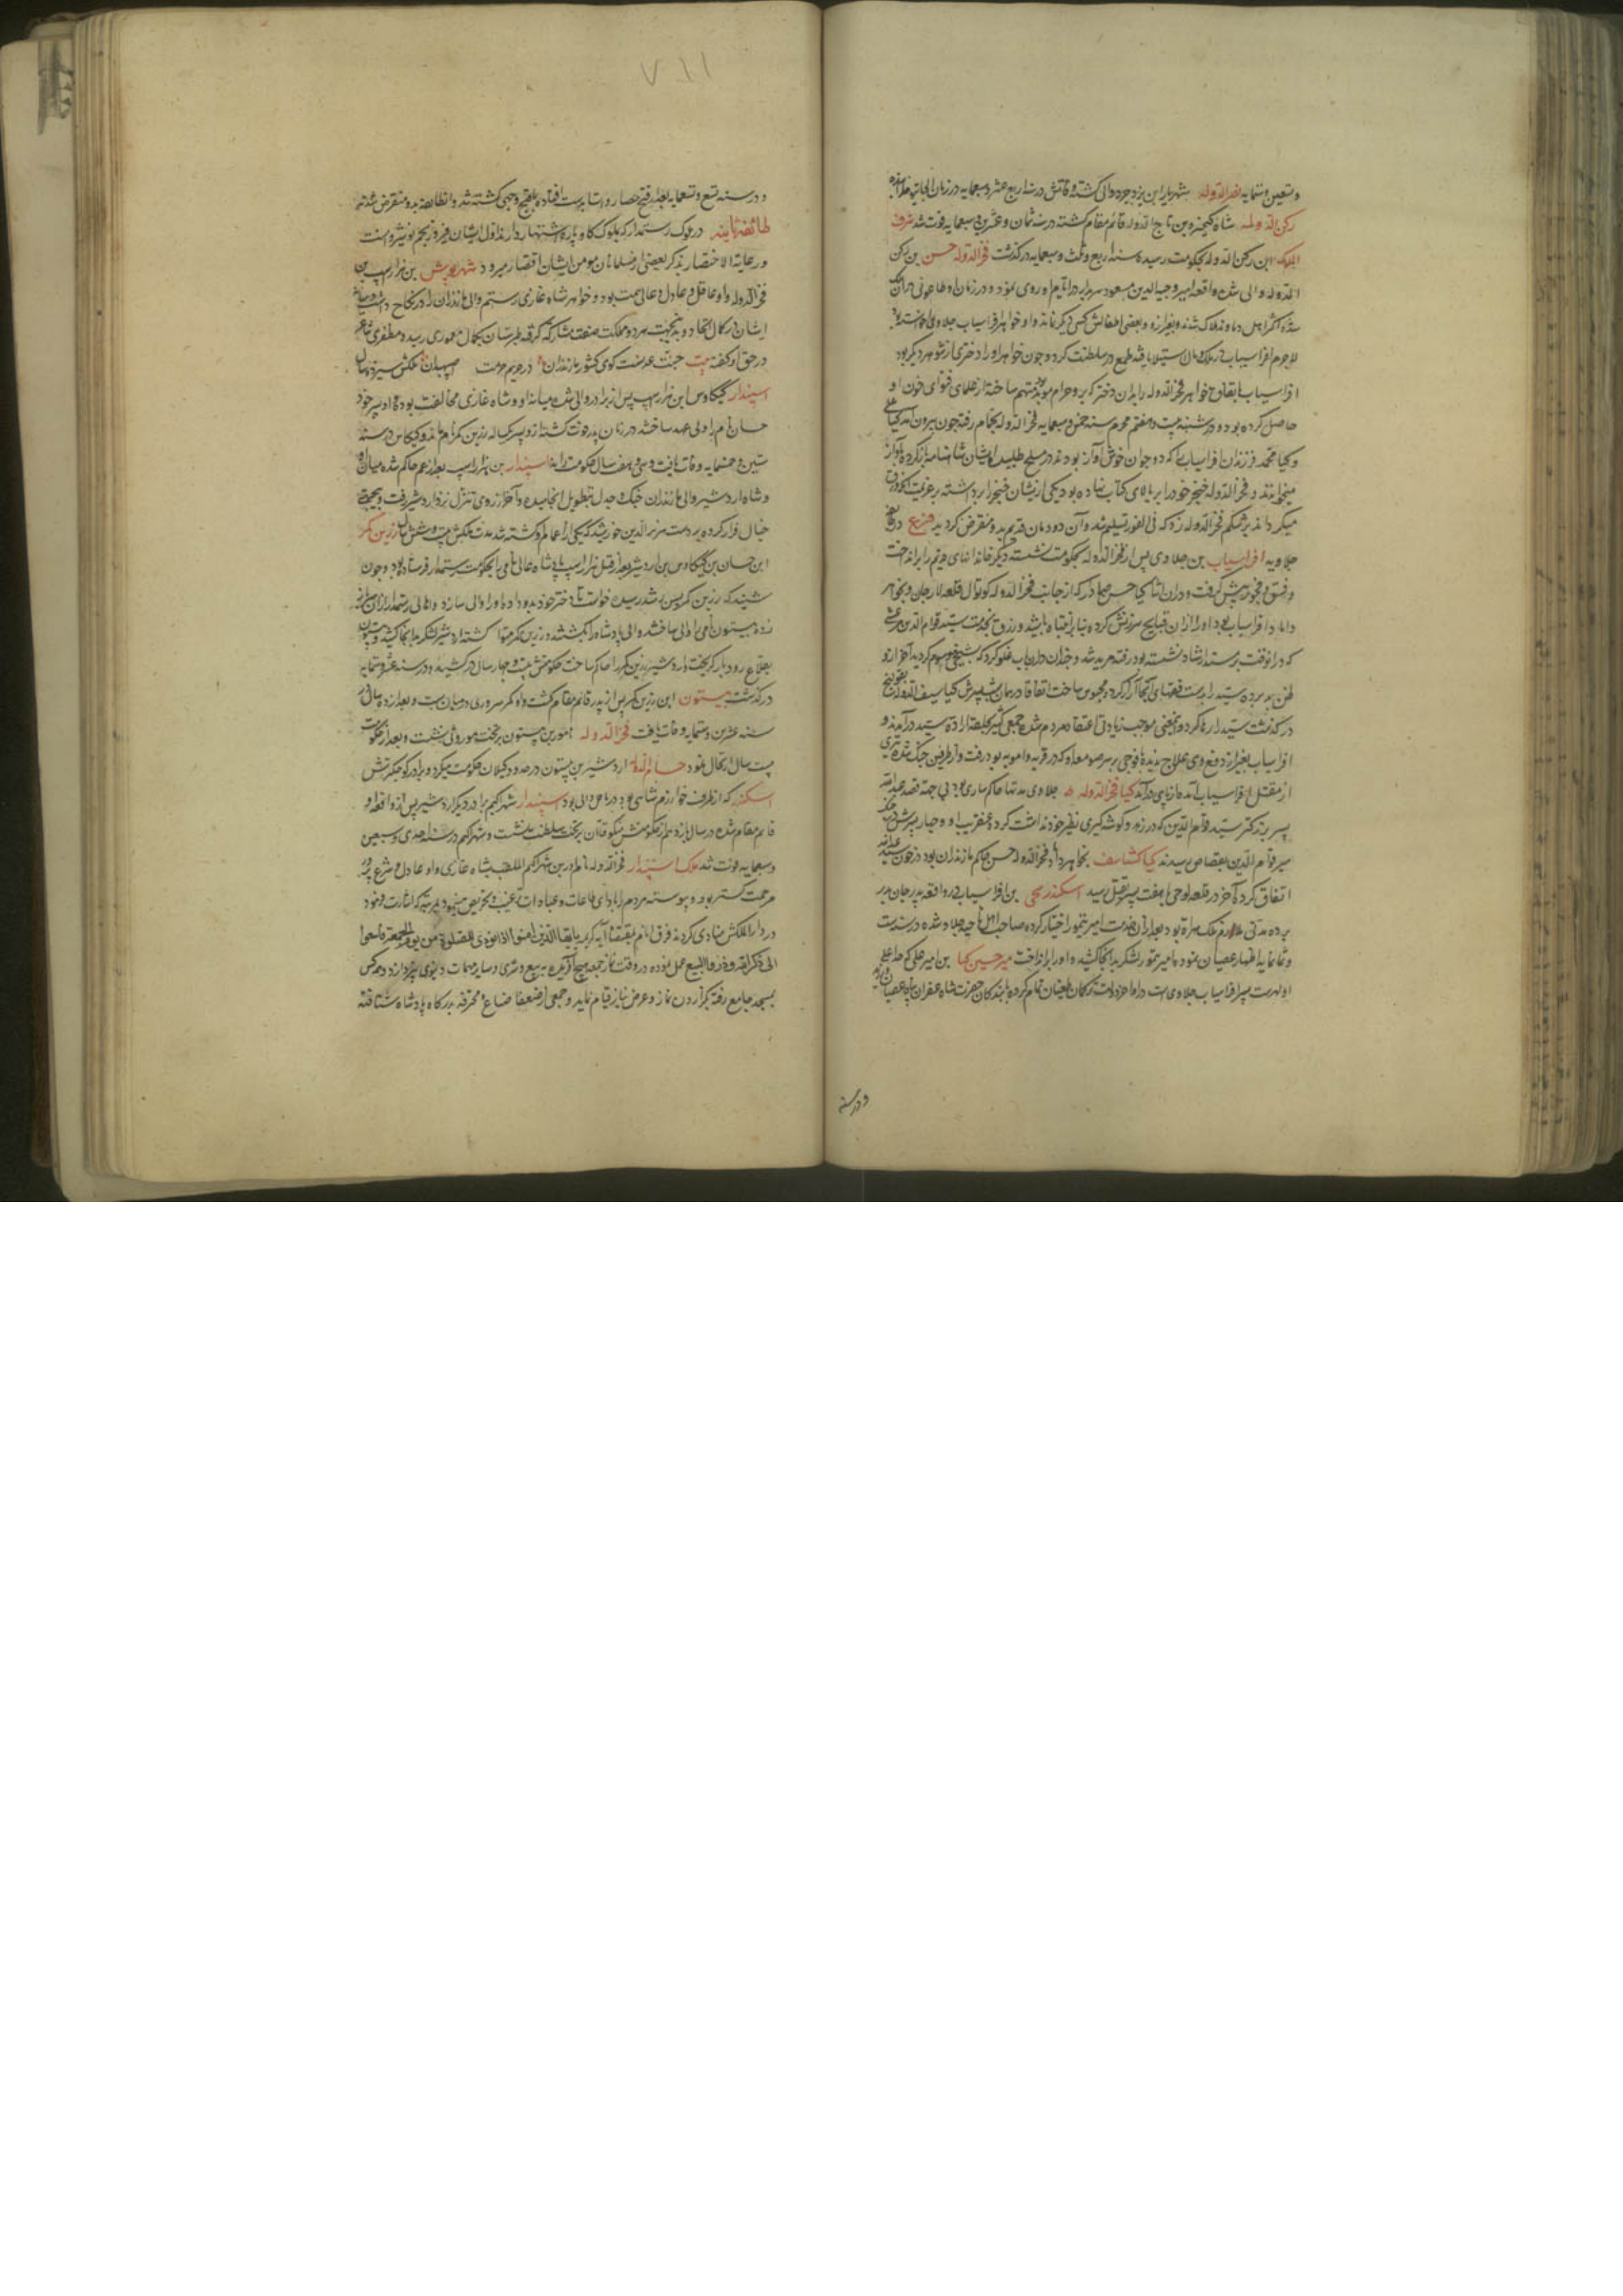 وتسعین وستمایه نصرالدوله شهریار ابن یزدجرد والی کشته وفاتش در سنه اربع عشر وسبعمایه در زمان الجایتو
رکن الدوله شاه کیخسرو بن تاج الدوله قائم مقام کشته در سنه ثمان وعشرین وسبعمایه فوت شد شرف
الملوک ابن رکن الدوله بحکومت رسیده سنه اربع وثلث وسبعمایه درکذشت فخرالدوله حسن بن رکن
الدوله والی شده واقعه امیر وجیه الدین مسعود سربدار در ایام او روی نمود ودر زمان او طاعونی
شده اکثر اهل دماوند هلاک شدند وبغیر ازو وبعضی اطفالش کسی دیکر نماند واو خواهر افراسیاب جلاوی
لاجرم افراسیاب در ملک ومال استیلا یافته طمع در سلطنت کرد وچون خواهر او را دختری از شوهر دیکر بود
افراسیاب باتفاق خواهر فخرالدوله را بدان دختر که برو حرام موبد متهم ساخته از علمای فتوای خون او
حاصل کرده بود ودر شنبه بیست وهفتم محرم سنه خمسین وسبعمایه فخرالدوله بحمام رفته چون بیرون آمد کیا علی
وکیا محمد فرزندان افراسیاب که دو جوان خوش آواز بودند در مسلخ طلبید ایشان شاهنامه باز کرده بآواز
میخواندند وفخرالدوله خنجر خود را بر بالای کتاب نهاده بود یکی از ایشان خنجر را برداشته
میکرداند بر شکم فخرالدوله زد که فی الفور تسلیم شد وآن دودمان قدیم بدو منقرض کردید فرع در
جلاویه افراسیاب بن جلاوی پس از فخرالدوله بحکومت نشسته دیکر خاندانهای قدیم را برانداخت
وفسق وفجور پیش کرفت ودران اثنا کیا حسن که از جانب فخرالدوله کوتوال قلعه لارجان وبخواهر
داماد افراسیاب بود او را ازان قبایح سرزنش کرده بنابر انتباه بخدمت سید قوام الدین مرعشی
که درانوقت برمسند ارشاد نشسته بود رفته مرید شد وچندان دران باب غلو کرد که بشیخی موسوم کردید آخر ازو
ظن بد برده سید را بدست فقهای آنجا آزار کرد ومحبوس ساخت اتفاقا در همان شب پسرش کیا سیف الدوله
درکذشت سید را رها کرد واینمعنی موجب زیادتی اعتقاد مردم شده جمعی کثیر بحلقه ارادة سید درآمدند و
افراسیاب بغیر از دفع وی علاج ندیده با فوجی بر سر صومعه او که در قریه وامویه بود رفت واز طرفین جنک شده
از مقتل افراسیاب آمده از پای درآمد کیا فخرالدوله جلاوی مدتها حاکم ساری بود بی جهت قصد عبدالله
پسر بزرکتر سید قوام الدین که در زهد وکوشه کیری نظیر خود نداشت کرد وعنقریب او وچهار پسرش در جنک
میر قوام الدین بقصاص رسیدند کیا کشتاسف بخواهر داماد فخرالدوله حسن حاکم مازندران بود در خون
اتفاق کرد تا آخر در قلعه توجی با هفت پسر بقتل رسید اسکندر شیخی بن افراسیاب در واقعه پدر جان بدر
برده مدتی ملازم ملک هراة بود بعد از آن خدمت امیر تیمور اختیار کرده صاحب ناحیه جلاو شده در سنه ست
وثمانمایه اظهار عصیان نمود وامیر تیمور لشکر بدانجا کشیده واو را برانداخت میر حسین کیا بن امیر علی که جد اعلی
اوست پسر افراسیاب جلاوی است در اواخر دولت ترکمان طغیان تمام کرده با بندکان حضرت شاه غفران پناه عصیان
ودر سنه
ودر سنه تسع وتسعمایه بعد از فتح حصار واستا بدست افتاده باقبح وجهی کشته شد وانطایفه بدو منقرض شدند
طائفه ثانیه در ملوک رستمدار که بملوک کاوباره اشتهار دارند اول ایشان فیروز بن نجم بن نوشروانست
ورعایة الاختصار بذکر بعضی از مسلمانان مومن ایشان اقتصار میرود شهرنوش بن هزاراسپ بن
فخرالدوله واو عاقل وعادل وعالی همت بود وخواهر شاه غازی رستم والی مازندران را در نکاح داشت ومیان
ایشان در کمال اتحاد وبدینجهت هر دو مملکت صفت مشارکت کرفته طبرستان بکمال معموری رسید ومظفری شاعر
در حق او کفته بیت جنت عدنست کوی کشور مازندران در حریم حرمت اصپهبدان ملکش سیزده سال
اسپندار کیکاوس ابن هزاراسپ پس از برادر والی شد میانه او وشاه غازی مخالفت بود واو پسر خود
حسان نام را ولی عهد ساخته در زمان پدر فوت کشته ازو پسر یکساله زرین کمر نام ماند وکیکاوس در سنه
ستین وخمسمایه وفات یافت وسی وهفت سال حکومت راند اسپندار بن هزاراسپ بعد از عم حاکم شده میان او
وشاه اردشیر والی مازندران جنک وجدل بتطویل انجامیده وآخر از روی تنزل نزد اردشیر رفت
خیال فرار کرده بر دست هزبرالدین خورشید که یکی از اعمال او کشته شد مدت ملکش بیست وشش سال زرین کمر
ابن حسان بن کیکاوس بن اردشیر بعد از قتل هزاراسپ پادشاه عالی نامی را بحکومت رستمدار فرستاده بود وچون
شنید که زرین کمر بسن رشد رسیده خواست تا دختر خود بدو داده او را والی سازد واهالی رستمدار ازان
زده بیستون نامی را والی ساختند والی پادشاه را بکشتند وزرین کمر متواری کشته اردشیر لشکر بدانجا کشیده
بقلاع رودبار کریخت واردشیر زرین کمر را حاکم ساخت حکومتش بیست وچهار سال درکشید ودر سنه عشر وستمایه
درکذشت بیستون ابن زرین کمر پس از پدر قائم مقام کشت واو کمر سروری در میان بست وبعد از ده سال در
سنه عشرین وستمایه وفات یافت فخرالدوله نامور بن بیستون بر تخت موروثی نشست وبعد از حکومت
بیست سال ارتحال نمود حسام الدوله اردشیر بن بیستون در حدود کیلان حکومت میکرد وبرادر کوچکترش
اسکندر که از طرف خوارزم شاهی بود در ناتل والی بود اسپندار شهراکیم برادر دیکر اردشیر پس از واقعه او
قائم مقام شده در سال یازدهم از حکومتش منکوقاآن بر تخت سلطنت بنشست وشهراکیم در سنه احدی وسبعین
وسبعمایه فوت شد ملک اسپندار فخرالدوله نامور بن شهراکیم الملقب بشاه غازی واو عادل ومتشرع پرور
مرحمت کستر بود وپیوسته مردم را بادای طاعات وعبادات ترغیب وتحریص مینمود بمرتبه که اشارت فرمود
در دارالملکش منادی کردند فرق انام بمقتضاء آیه کریمه یا ایها الذین امنوا اذا نودی للصلوة من یوم الجمعة فاسعوا
الی ذکر الله وذروا البیع عمل نموده در وقت نماز جمعه هیچ آفریده به بیع وشری وسایر مهمات دنیوی نپردازد وهمه کس
بمسجد جامع رفته بکزاردن نماز وعرض نیاز قیام نماید وجمعی از ضعفا صناع ومحترفه بدرکاه پادشاه شتافته